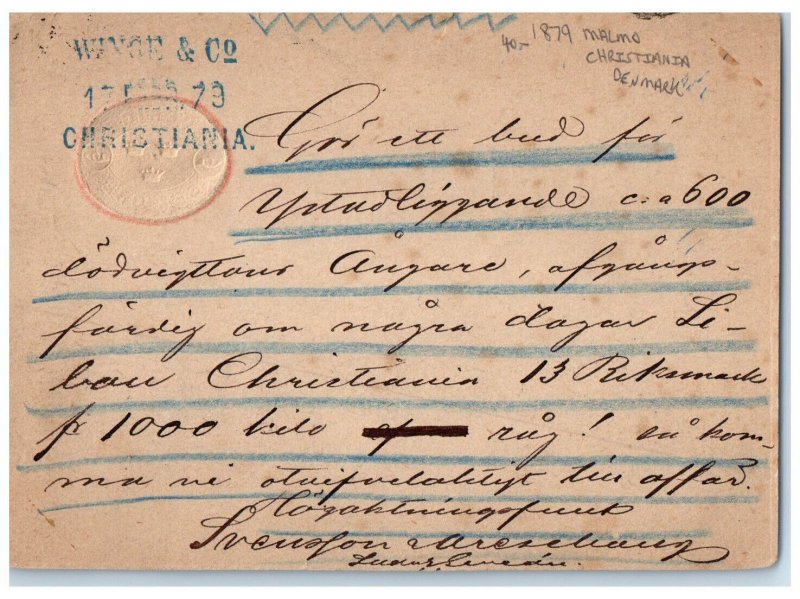 WINGE & Co
17 79
CHRISTIANIA.
40.- 1879 MALMO
CHRISTIANIA
DENMARK
Gör ett bud för
Ystadliggande c:a 600
dödvigttons Ångare, afgångs-
färdig om några dagar Li-
bau Christiania 13 Riksmark
pr 1000 kilo råg! så kom-
ma vi otvifvelaktigt till affär.
Högaktningsfullt
Svenson